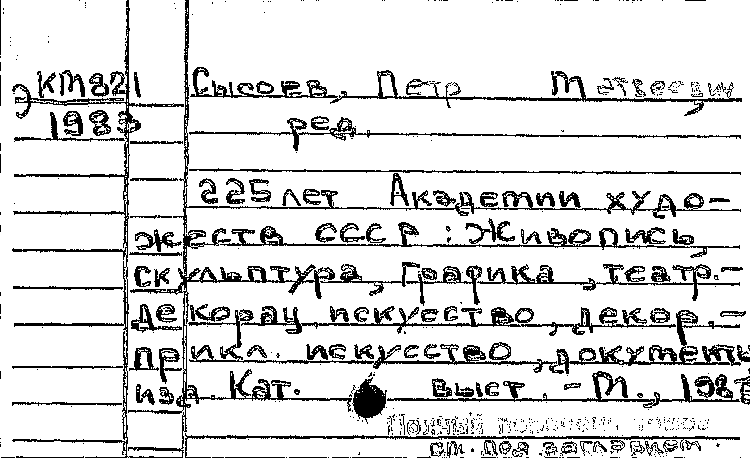 КМ821 Сысоев, Петр Матвеевич,
1983 ред.
225 лет Академии худо-
жеств СССР : Живопись,
скульптура, графика, театр.-
декорац. искусство, декор.-
прикл. искусство, документы
изд. Кат. выст. - М., 198
Полный перечень томов
см. под заглавием.